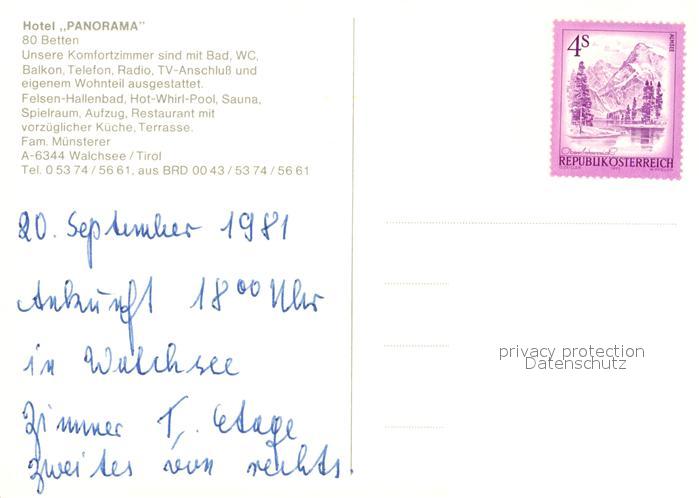 Hotel „PANORAMA"
80 Betten
Unsere Komfortzimmer sind mit Bad, WC,
Balkon, Telefon, Radio, TV-Anschluß und
eigenem Wohnteil ausgestattet.
Felsen-Hallenbad, Hot-Whirl-Pool, Sauna,
Spielraum, Aufzug, Restaurant mit
vorzüglicher Küche, Terrasse.
Fam. Münsterer
A-6344 Walchsee / Tirol
Tel. 0 53 74 / 56 61, aus BRD 00 43 / 53 74 / 56 61
20. September 1981
Ankunft 18 00 Uhr
in Walchsee
Zimmer 1. Etage
zweites von rechts.
4 S
ALMSEE
REPUBLIK ÖSTERREICH
privacy protection
Datenschutz